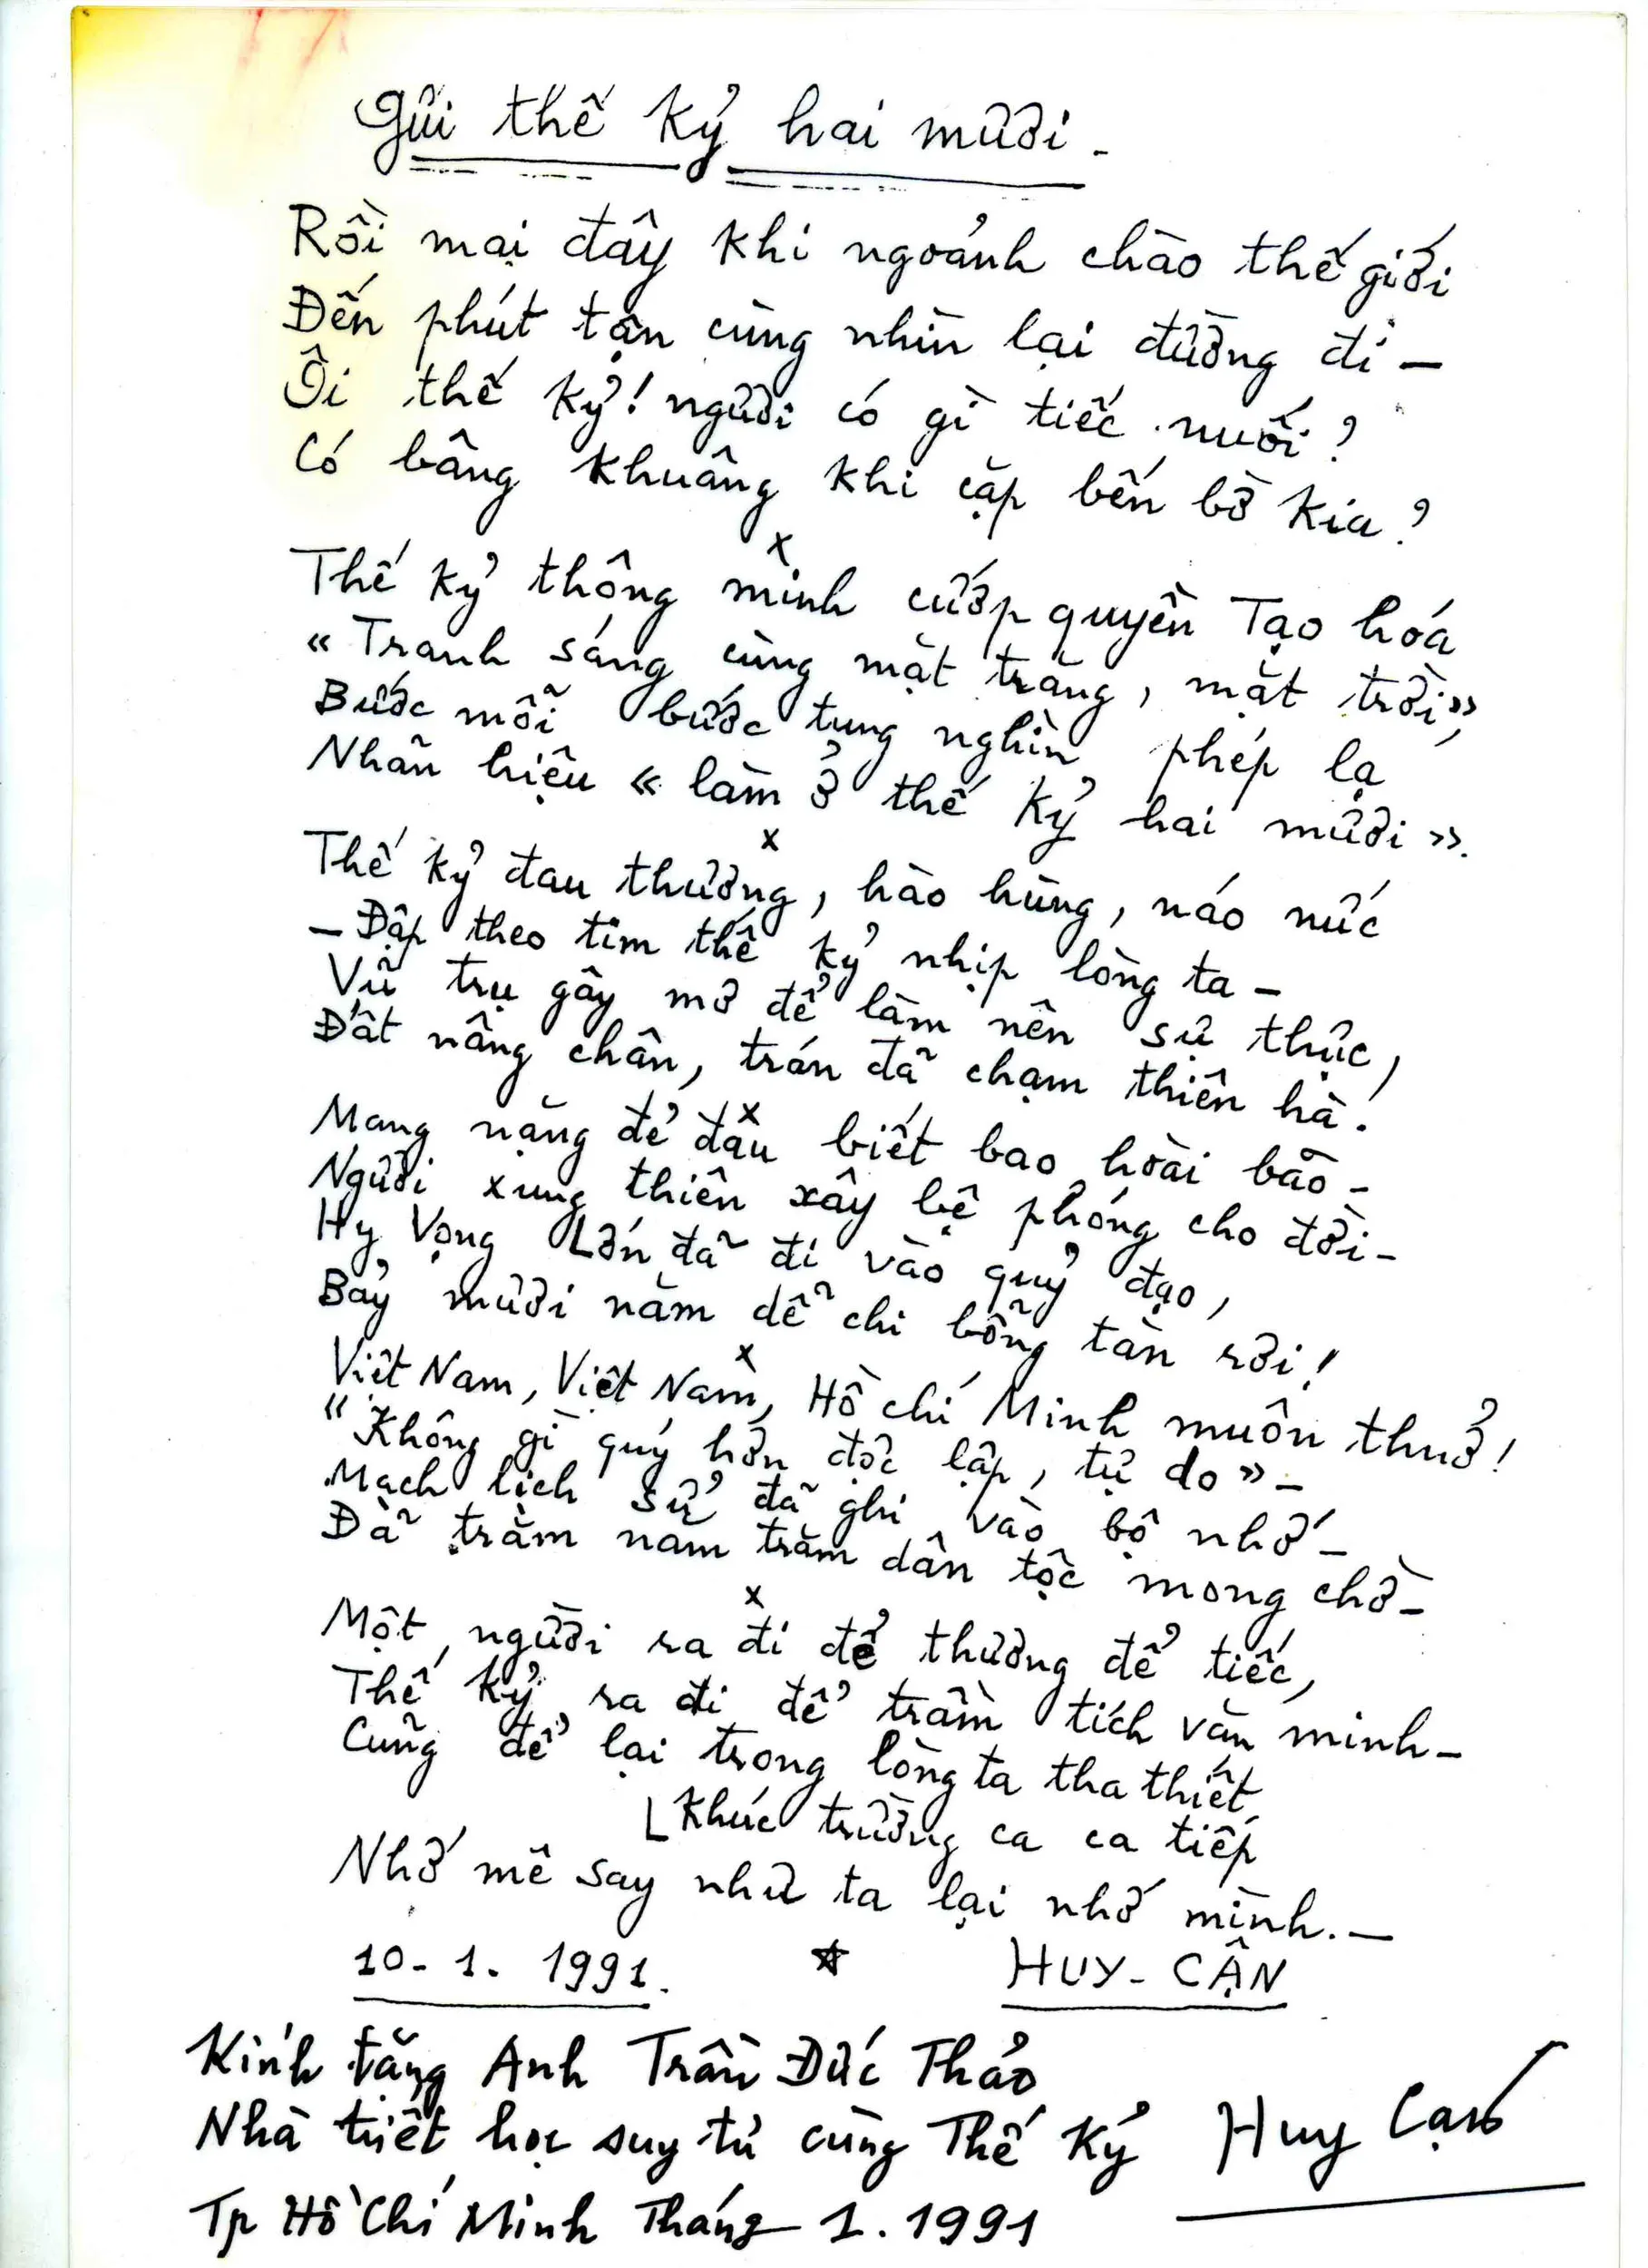 Gửi thế kỷ hai mươi -
Rồi mai đây khi ngoảnh chào thế giới
Đến phút tận cùng nhìn lại đường đi -
Ôi thế kỷ! người có gì tiếc nuối?
Có bâng khuâng khi cặp bến bờ kia?
x
Thế kỷ thông minh cướp quyền Tạo hóa
« Tranh sáng cùng mặt trăng, mặt trời »,
Bước mỗi bước tung nghìn phép lạ
Nhãn hiệu « làm ở thế kỷ hai mươi ».
x
Thế kỷ đau thương, hào hùng, náo nức
- Đập theo tim thế kỷ nhịp lòng ta -
Vũ trụ gây mơ để làm nên sự thực,
Đất nâng chân, trán đã chạm thiên hà!
x
Mang nặng đẻ đau biết bao hoài bão -
Người xung thiên xây bệ phóng cho đời -
Hy Vọng Lớn đã đi vào quỹ đạo,
Bảy mươi năm dễ chi bỗng tàn rơi!
x
Việt Nam, Việt Nam, Hồ chí Minh muôn thuở!
« Không gì quý hơn độc lập, tự do » -
Mạch lịch sử đã ghi vào bộ nhớ -
Đã trăm năm trăm dân tộc mong chờ -
x
Một người ra đi để thương để tiếc,
Thế kỷ ra đi để trầm tích văn minh -
Cũng để lại trong lòng ta tha thiết
[Khúc trường ca ca tiếp
Nhớ mê say như ta lại nhớ mình. -
10 - 1. 1991. ☆ HUY - CẬN
Kính tặng Anh Trần Đức Thảo
Nhà triết học suy tư cùng Thế Kỷ Huy Cận
Tp Hồ Chí Minh Tháng 1. 1991